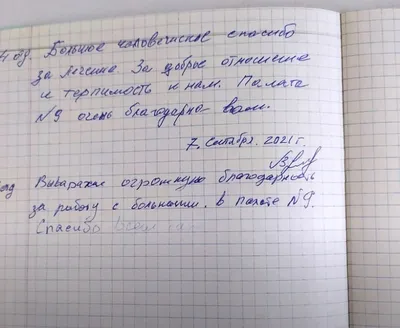 Большое человеческое спасибо
за лечение. За доброе отношение
и терпимость к нам. Палата
№9 очень благодарна вам.
7. Сентября. 2021 г.
Выражаем огромную благодарность
за работу с больными. в палате №9.
Спасибо Всем